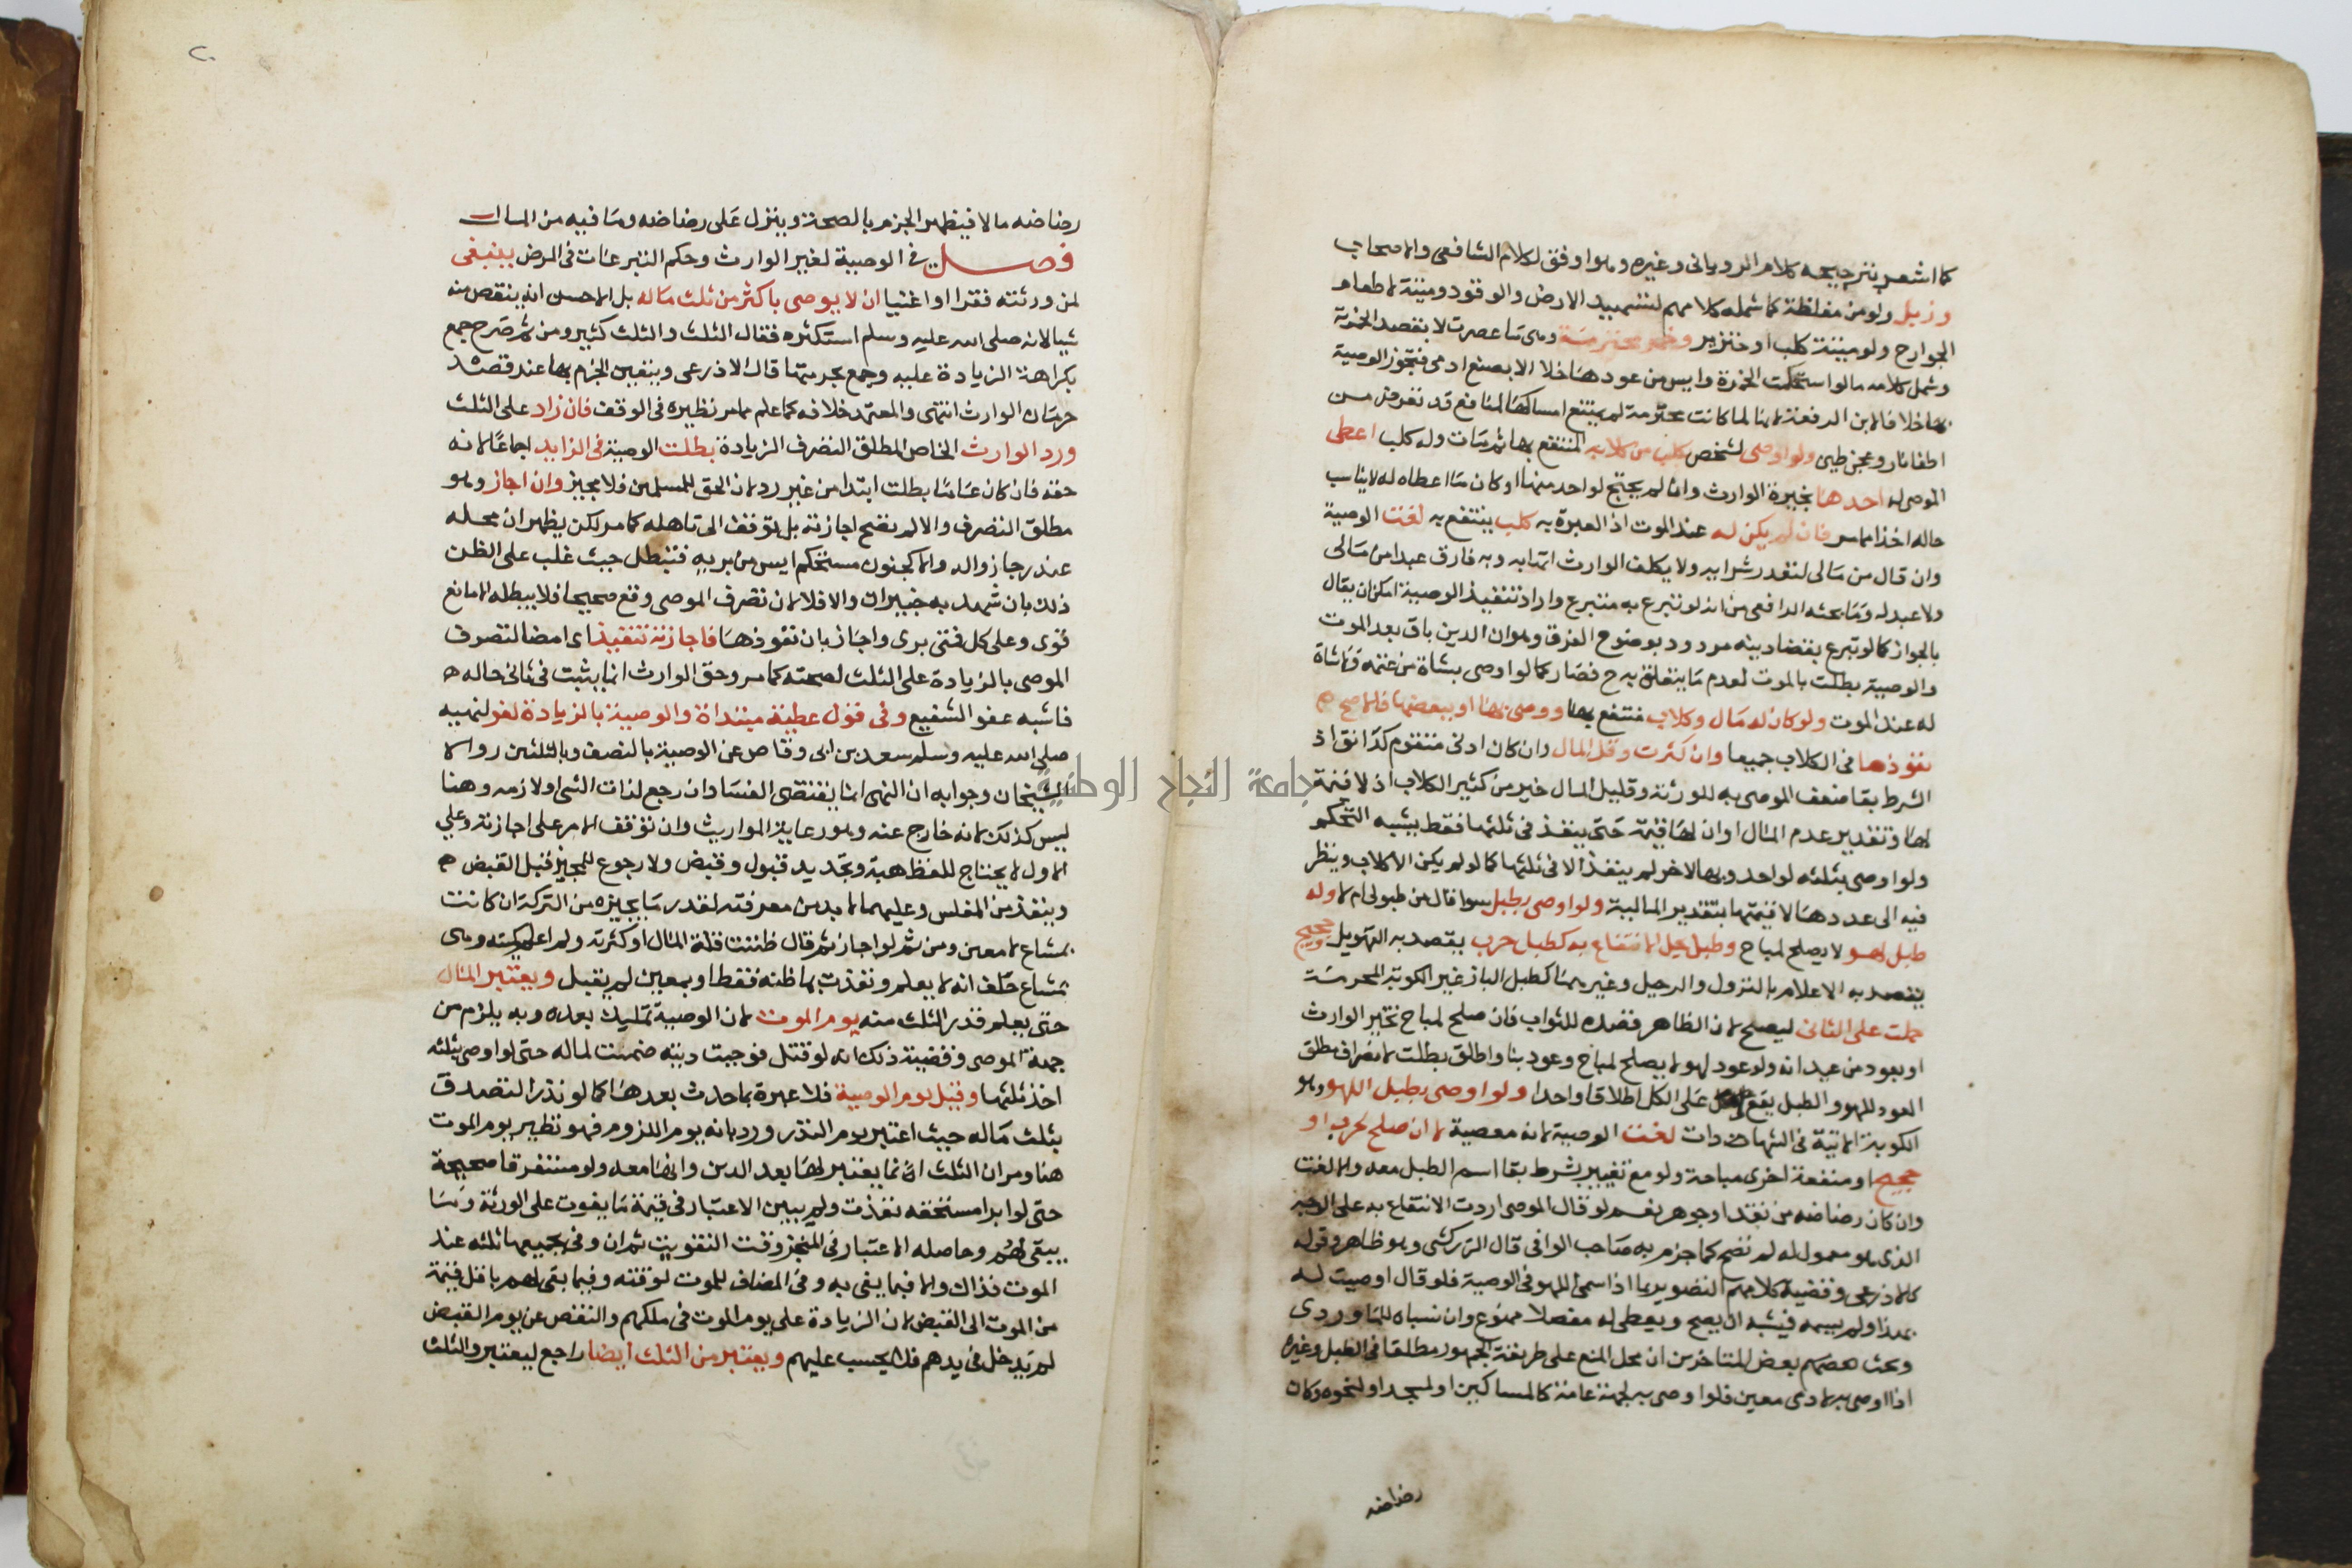 كما اشعر بترجيحه كلام الروياني وغيره وهو اوفق لكلام الشافعي والاصحاب
وزبل ولو من مغلظة كما شمله كلامهم لتسميد الارض والوقود وميتة لاطعام
الجوارح ولو ميتة كلب او خنزير وخمر محترمة وهي ما عصرت لا بقصد الخمرية
وشمل كلامه ما لو استحكمت الخمرة وايس من عودها خلا الا بصنع ادمي فتجوز الوصية
بها خلافا لابن الرفعة لانها لما كانت محترمة لم يمتنع امساكها لمنافع قد تفرض من
اطفا نار وعجن طين ولو اوصى لشخص بكلب من كلابه المنتفع بها ثم مات وله كلب اعطي
الموصى له احدها بخيرة الوارث وان لم يحتج لواحد منها او كان ما اعطاه له لا يناسب
حاله اخذا مما مر فان لم يكن له عند الموت اذ العبرة به كلب ينتفع به لغت الوصية
وان قال من مالي لتعذر شرايه ولا يكلف الوارث اتهابه وبه فارق عبدا من مالي
ولا عبد له وما بحثه الرافعي من انه لو تبرع به متبرع واراد تنفيذ الوصية امكن ان يقال
بالجواز كما لو تبرع بقضا دينه مردود بوضوح الفرق وهو ان الدين باق بعد الموت
والوصية بطلت بالموت لعدم ما يتعلق به ح فصار كما لو اوصى بشاة من غنمه ولا شاة
له عند الموت ولو كان له مال وكلاب منتفع بها ووصى بها او ببعضها فالاصح
نفوذها في الكلاب جميعا وان كثرت وقل المال وان كان ادنى متقوم كدانق اذ
الشرط بقا ضعف الموصى به للورثة وقليل المال خير من كثير الكلاب اذ لا قيمة
لها وتقدير عدم المال او ان لها قيمة حتى ينفذ في ثلثها فقط يشبه التحكم
ولو اوصى بثلثه لواحد وبها لاخر لم ينفذ الا في ثلثها كما لو لم يكن الا كلاب وينظر
فيه الى عددها لا قيمتها بتقدير المالية ولو اوصى بطبل سوا قال من طبولي ام لا وله
طبل لهو لا يصلح لمباح وطبل يحل الانتفاع به كطبل حرب يقصد به التهويل وحجيج
يقصد به الاعلام بالنزول والرحيل وغيرهما كطبل الباز غير الكوبة المحرمة
حملت على الثاني ليصح لان الظاهر قصده للثواب فان صلح لمباح تخير الوارث
او بعود من عيدانه وله عود لهو لا يصلح لمباح وعود بنا واطلق بطلت لانصراف مطلق
العود للهو والطبل يقع على الكل اطلاقا واحدا ولو اوصى بطبل اللهو وهو
الكوبة الاتية في الشهادات لغت الوصية لانه معصية الا ان صلح لحرب او
حجيج او منفعة اخرى مباحة ولو مع تغيير بشرط بقا اسم الطبل معه والا لغت
وان كان رضاضه من نقد او جوهر نعم لو قال الموصي اردت الانتفاع به على الوجه
الذي هو معمول له لم تصح كما جزم به صاحب الوافي قال الزركشي وهو ظاهر وقول
الاذرعي وقضية كلامهم التصوير بما اذا سمى اللهو في الوصية فلو قال اوصيت له
بهذا ولم يسمه فيشبه ان يصح ويعطى له مفصلا ممنوع وان نسباه للماوردي
وبحث بعضهم بعض المتاخرين ان محل المنع على طريقة الجمهور مطلقا في الطبل وغيره
اذا اوصى به لادمي معين فلو اوصى به لجهة عامة كالمساكين او لمسجد او لنحوه وكان
رضاضه
٢٠
رضاضه مالا فيظهر الجزم بالصحة وينزل على رضاضه وما فيه من المال
فصل في الوصية لغير الوارث وحكم التبرعات في المرض ينبغي
لمن ورثته فقرا او اغنيا ان لا يوصي باكثر من ثلث ماله بل الاحسن انه ينقص منه
شيا لانه صلى الله عليه وسلم استكثره فقال الثلث والثلث كثير ومن ثم صرح جمع
بكراهة الزيادة عليه وجمع بحرمتها قال الاذرعي ويتعين الجزم بها عند قصد
حرمان الوارث انتهى والمعتمد خلافه كما علم مما مر نظيره في الوقف فان زاد على الثلث
ورد الوارث الخاص المطلق التصرف الزيادة بطلت الوصية في الزايد اجماعا لانه
حقه فان كان عاما بطلت ابتدا من غير رد لان الحق للمسلمين فلا مجيز وان اجاز وهو
مطلق التصرف والا لم تصح اجازته بل توقف الى تاهله كما مر لكن يظهر ان محله
عند رجا زواله والا كجنون مستحكم ايس من بريه فتبطل حيث غلب على الظن
ذلك بان شهد به خبيران والا فلا لان تصرف الموصي وقع صحيحا فلا يبطله الا مانع
قوي وعلى كل فمتى برى واجاز بان نفوذها فاجازته تنفيذ اي امضا لتصرف
الموصي بالزيادة على الثلث لصحته كما مر وحق الوارث انما يثبت في ثاني حاله
فاشبه عفو الشفيع وفي قول عطية مبتداة والوصية بالزيادة لغو لنهيه
صلى الله عليه وسلم سعد بن ابي وقاص عن الوصية بالنصف وبالثلثين رواه
الشيخان وجوابه ان النهي انما يقتضي الفساد ان رجع لذات الشي او لازمه وهنا
ليس كذلك لانه خارج عنه وهو رعاية المواريث وان توقف الامر على اجازته وعلى
الاول لا يحتاج للفظ هبة وتجديد قبول وقبض ولا رجوع للمجيز قبل القبض
وينفذ من المفلس وعليهما لا بد من معرفته لقدر ما يجيزه من التركة ان كانت
بمشاع لا معين ومن ثم لو اجاز ثم قال ظننت قلة المال او كثرته ولم اعلم كميته وهي
بمشاع حلف انه لا يعلم ونفذت بما ظنه فقط او بمعين لم يقبل ويعتبر المال
حتى يعلم قدر الثلث منه يوم الموت لان الوصية تمليك بعده وبه يلزم من
جهة الموصي وقضية ذلك انه لو قتل فوجبت ديته ضمت لماله حتى لو اوصى بثلثه
اخذ ثلثها وقيل يوم الوصية فلا عبرة بما حدث بعدها كما لو نذر التصدق
بثلث ماله حيث اعتبر يوم النذر ورد بانه يوم اللزوم فهو نظير يوم الموت
هنا ومر ان الثلث انما يعتبر لها بعد الدين وانها معه ولو مستغرقا صحيحة
حتى لو ابرا مستحقه نفذت ولم يبين الاعتبار في قيمة ما يفوت على الورثة وما
يبقى لهم وحاصله الاعتبار في المنجز وقت التفويت ثم ان وفى بجميعها ثلثه عند
الموت فذاك والا فيما يفي به وفي المضاف للموت لوقته وفيما بقى لهم باقل قيمة
من الموت الى القبض لان الزيادة على يوم الموت في ملكهم والنقص عن يوم القبض
لم يدخل في يدهم فلا يحسب عليهم ويعتبر من الثلث ايضا راجع ليعتبر والثلث
جامعة النجاح الوطنية